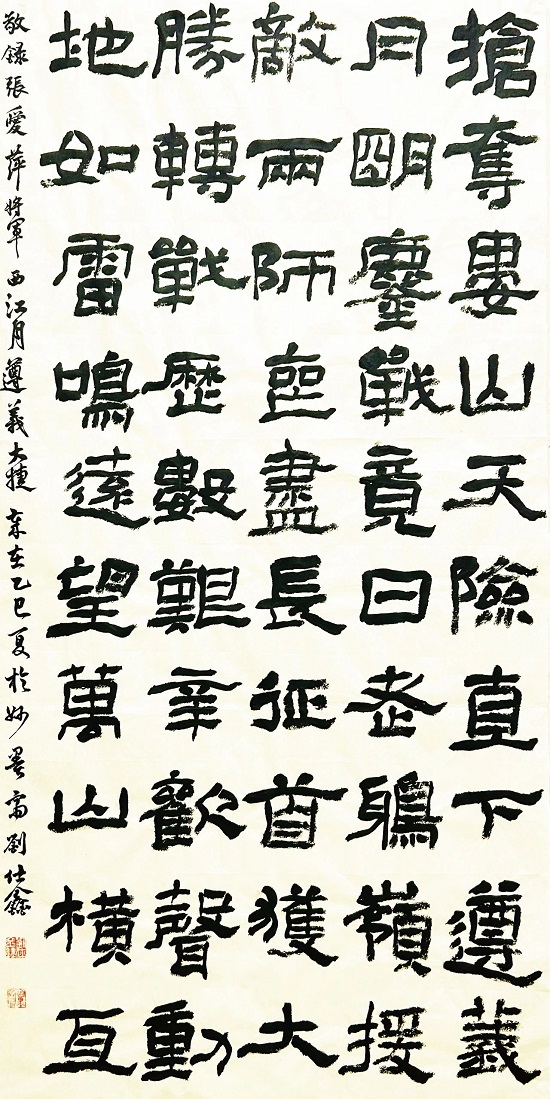 搶奪婁山天險直下遵義
月明鏖戰竟日老鴉嶺援
敵兩師盡長征首獲大
勝轉戰歷數艱辛歡聲動
地如雷鳴遠望萬山橫亙
敬錄張愛萍將軍西江月遵義大捷歲在乙巳夏於妙墨齋劉仕鑫